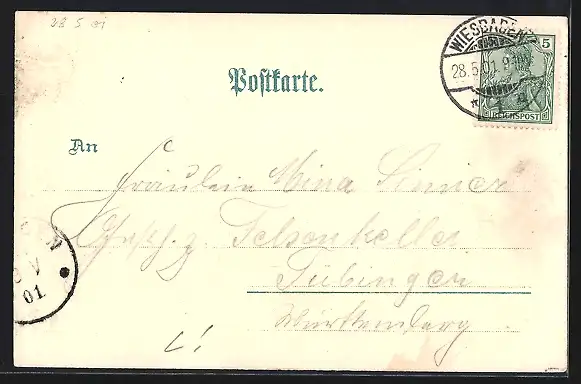 28 5 01
WIESBADEN
28.5.01.9
5
REICHSPOST
Postkarte.
An
Fräulein Mina
z. Felsenkeller
Tübingen
Württemberg
V
01